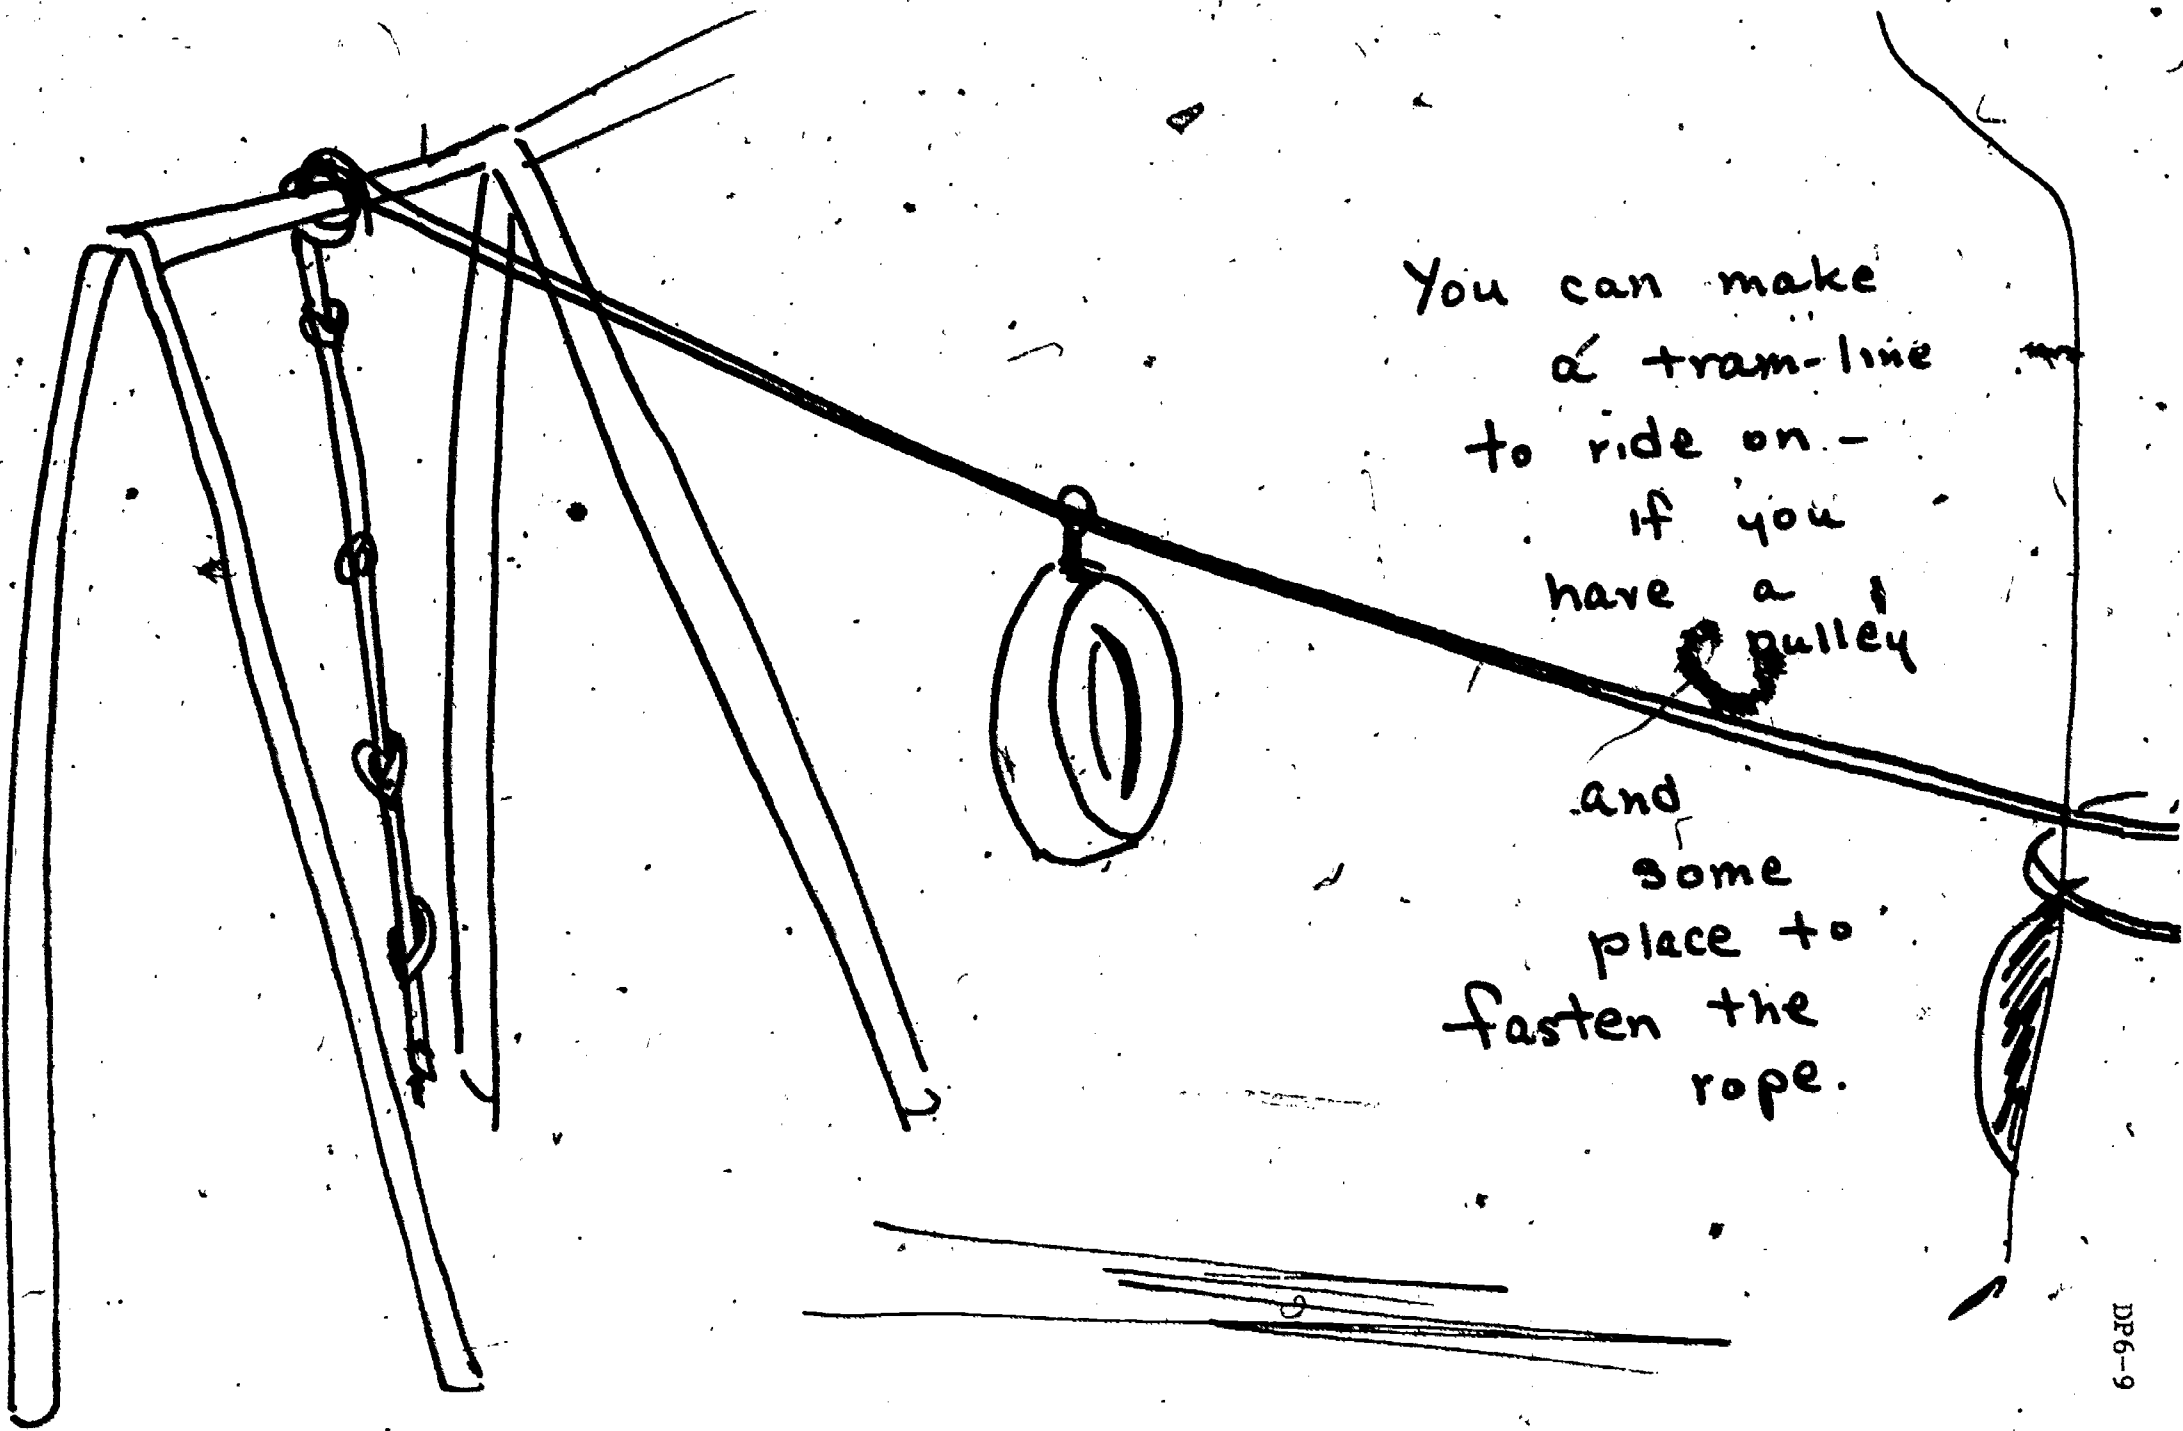 You can make
a tram-line
to ride on -
if you
have a
pulley
and
some
place to
fasten the
rope.
DP6-9